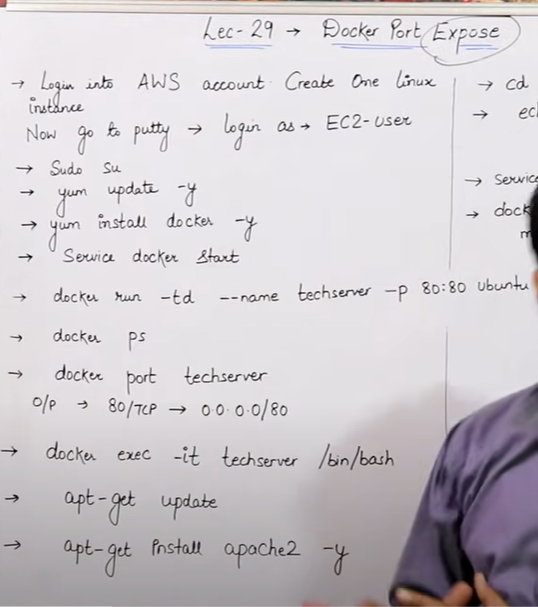 Lec-29 → Docker Port Expose
→ Login into AWS account. Create One linux
instance
Now go to putty → login as → EC2-user
→ Sudo su
→ yum update -y
→ yum install docker -y
→ Service docker start
→ docker run -td --name techserver -p 80:80 ubuntu
→ docker ps
→ docker port techserver
O/P → 80/TCP → 0.0.0.0/80
→ docker exec -it techserver /bin/bash
→ apt-get update
→ apt-get install apache2 -y
→ cd
→
→
→